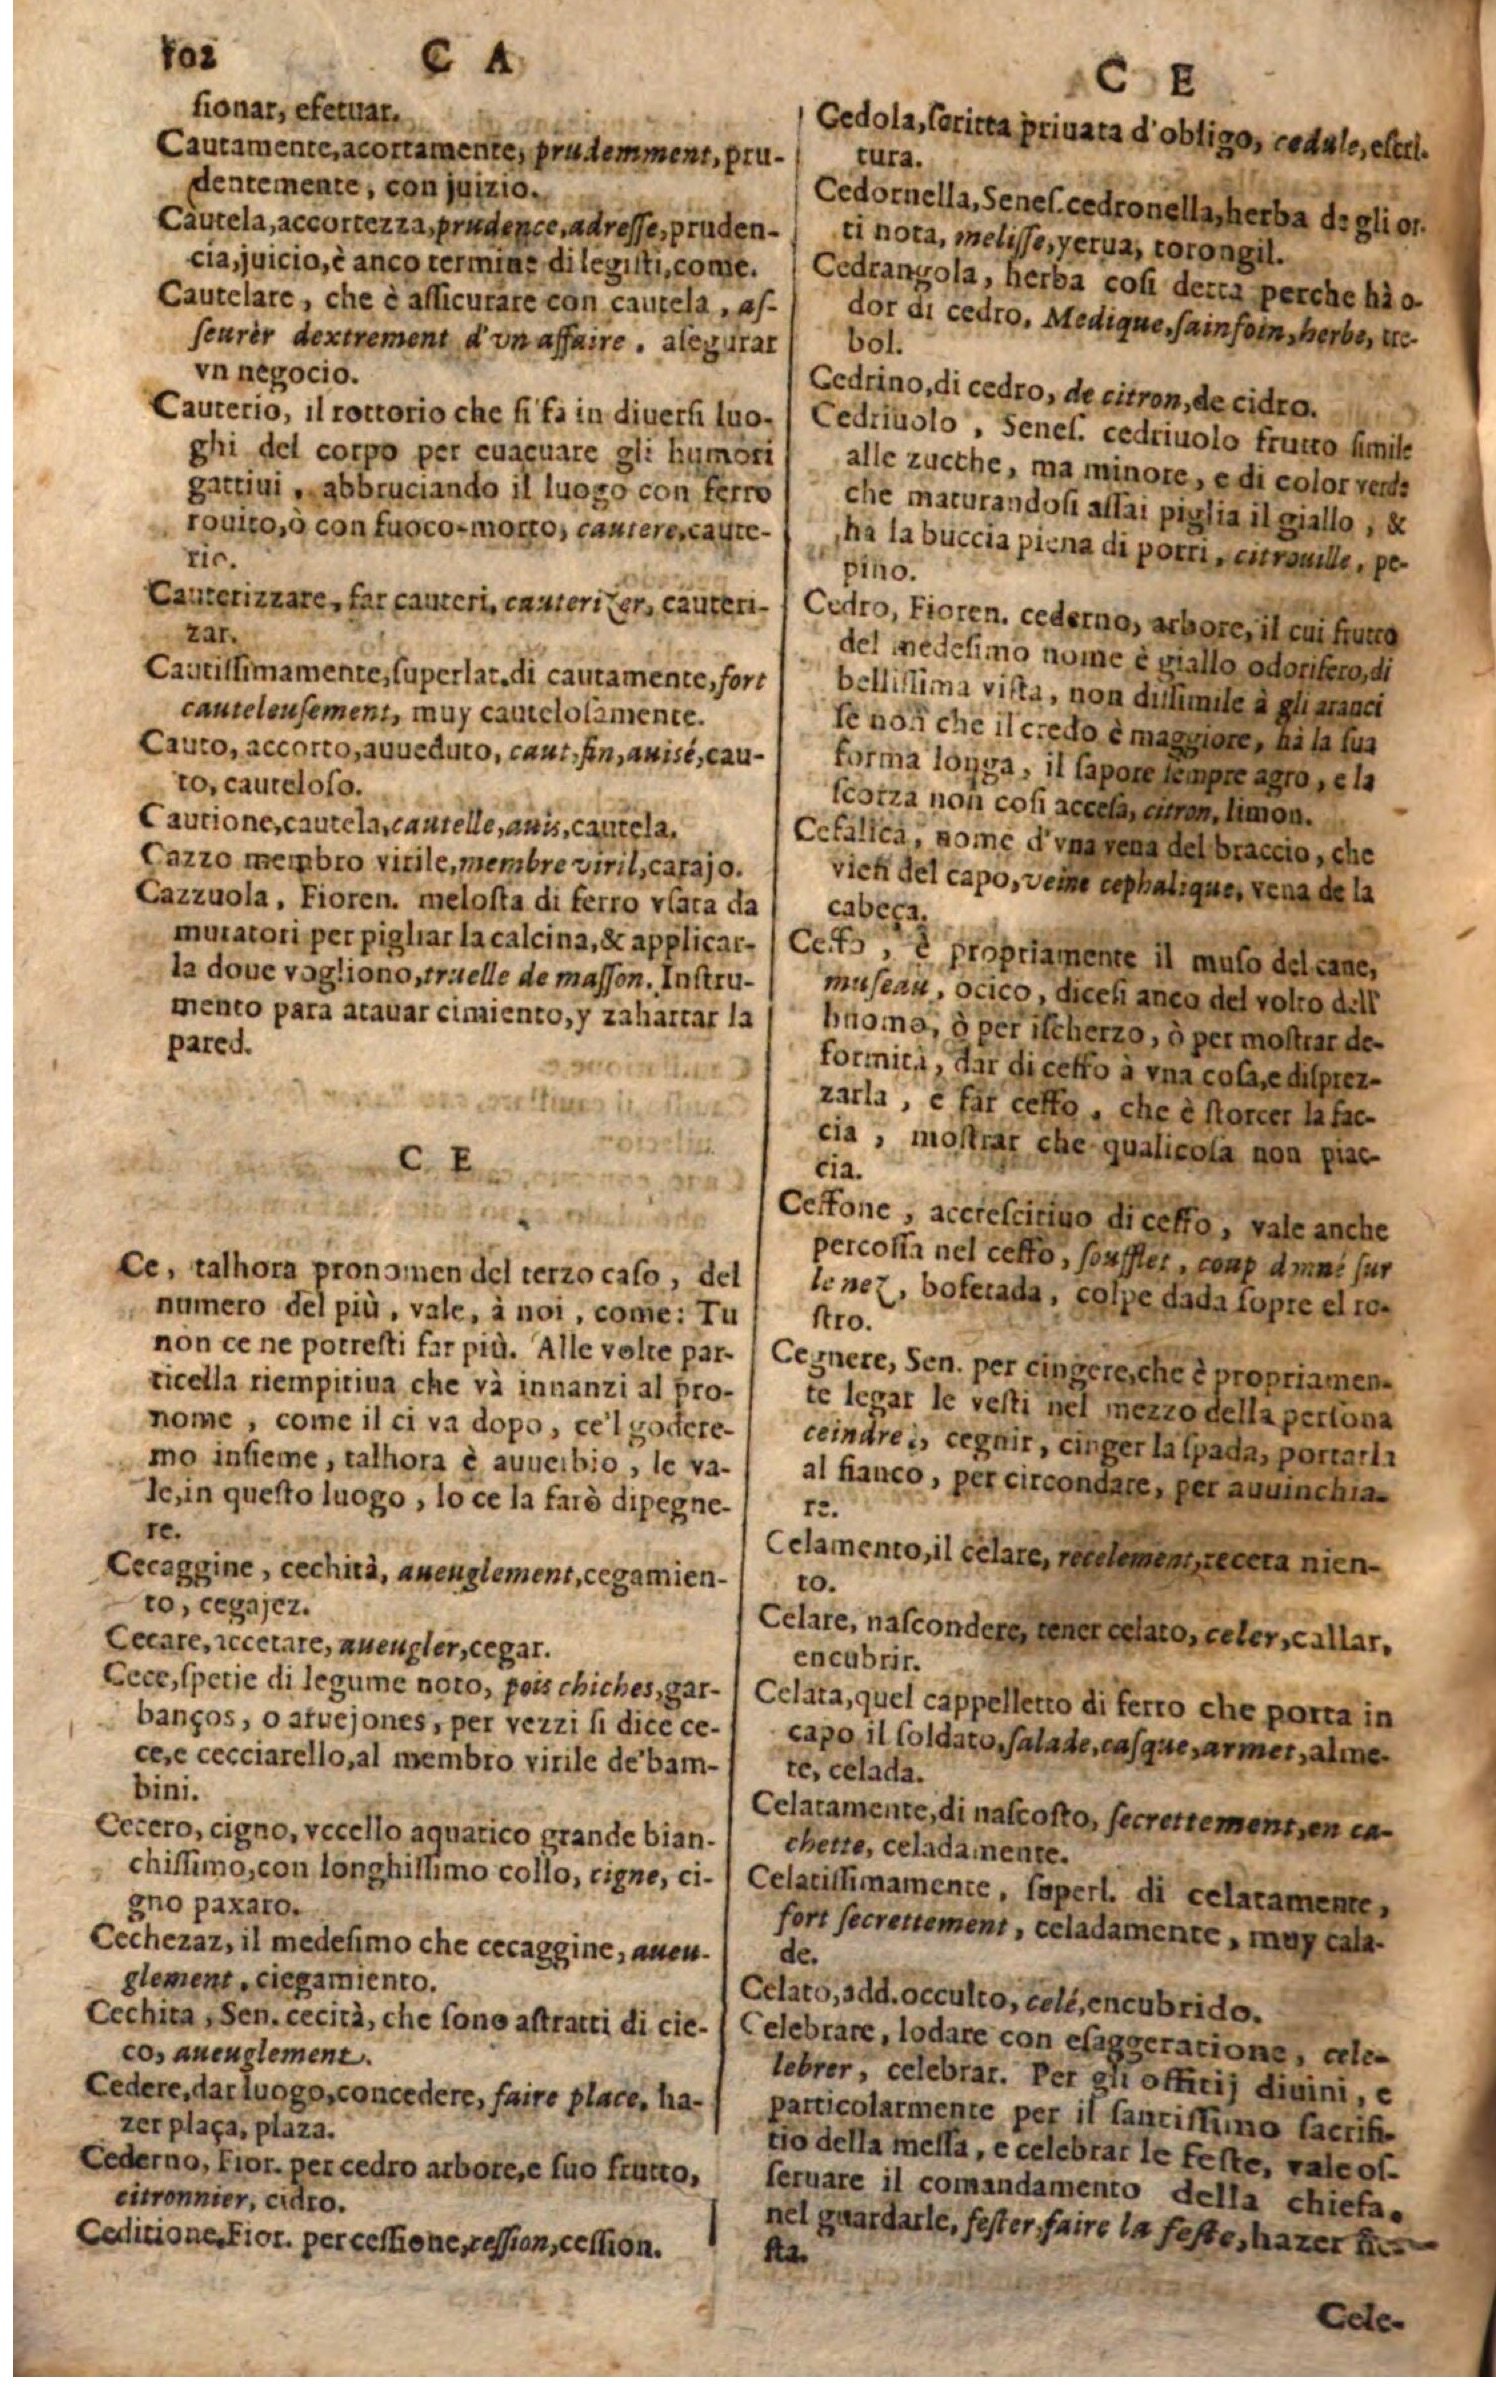 102 C A
sionar, efetuar.
Cautamente,acortamente, prudemment, pru-
dentemente, con juizio.
Cautela,accortezza,prudence,adresse,pruden-
cia,juicio,è anco termine di legisti,come.
Cautelare, che è assicurare con cautela, as-
seurèr dextrement d'vn affaire. asegurar
vn negocio.
Cauterio, il rottorio che si fà in diuersi luo-
ghi del corpo per euacuare gli humori
cattiui, abbruciando il luogo con ferro
rouito,ò con fuoco-morto, cautere,caute-
rio.
Cauterizzare, far cauteri, cauterizer, cauteri-
zar.
Cautissimamente,superlat.di cautamente,fort
cauteleusement, muy cautelosamente.
Cauto, accorto,auueduto, caut,fin,auisé,cau-
to, cauteloso.
Cautione,cautela,cautelle,auis,cautela.
Cazzo membro virile,membre viril,carajo.
Cazzuola, Fioren. melosta di ferro vsata da
muratori per pigliar la calcina,& applicar-
la doue vogliono,truelle de masson. Instru-
mento para atauar cimiento,y zahartar la
pared.
C E
Ce, talhora pronomen del terzo caso, del
numero del più, vale, à noi, come: Tu
non ce ne potresti far più. Alle volte par-
ticella riempitiua che và innanzi al pro-
nome, come il ci va dopo, ce'l godere-
mo insieme, talhora è auuerbio, le va-
le,in questo luogo, lo ce la farò dipegne-
re.
Cecaggine, cechità, aueuglement,cegamien-
to, cegajez.
Cecare,accecare, aueugler,cegar.
Cece,spetie di legume noto, pois chiches,gar-
banços, o aruejones, per vezzi si dice ce-
ce,e cecciarello,al membro virile de'bam-
bini.
Cecero, cigno, vccello aquatico grande bian-
chissimo,con longhissimo collo, cigne, ci-
gno paxaro.
Cechezaz, il medesimo che cecaggine, aueu-
glement, ciegamiento.
Cechita, Sen. cecità, che sono astratti di cie-
co, aueuglement.
Cedere,dar luogo,concedere, faire place, ha-
zer plaça, plaza.
Cederno, Fior. per cedro arbore,e suo frutto,
citronnier, cidro.
Ceditione,Fior. per cessione,cession,cession.
C E
Cedola,scritta priuata d'obligo, cedule,escri-
tura.
Cedornella,Senes.cedronella,herba de gli or-
ti nota, melisse,yerua, torongil.
Cedrangola, herba cosi detta perche hà o-
dor di cedro, Medique,sainfoin,herbe, tre-
bol.
Cedrino,di cedro, de citron,de cidro.
Cedriuolo, Senes. cedriuolo frutto simile
alle zucche, ma minore, e di color verde
che maturandosi assai piglia il giallo, &
ha la buccia piena di porri, citrouille, pe-
pino.
Cedro, Fioren. cederno, arbore, il cui frutto
del medesimo nome è giallo odorifero,di
bellissima vista, non dissimile à gli aranci
se non che il credo è maggiore, hà la sua
forma longa, il sapore sempre agro, e la
scorza non cosi accesa, citron, limon.
Cefalica, nome d'vna vena del braccio, che
vien del capo,veine cephalique, vena de la
cabeça.
Ceffo, è propriamente il muso del cane,
museau, ocico, dicesi anco del volto dell'
huomo, ò per ischerzo, ò per mostrar de-
formità, dar di ceffo à vna cosa,e disprez-
zarla, e far ceffo, che è storcer la fac-
cia, mostrar che qualicosa non piac-
cia.
Ceffone, accrescitiuo di ceffo, vale anche
percossa nel ceffo, soufflet, coup donné sur
le nez, bofetada, colpe dada sopre el ro-
stro.
Cegnere, Sen. per cingere,che è propriamen-
te legar le vesti nel mezzo della persona
ceindre, cegnir, cinger la spada, portarla
al fianco, per circondare, per auuinchia-
re.
Celamento,il celare, recelement,receta nien-
to.
Celare, nascondere, tener celato, celer,callar,
encubrir.
Celata,quel cappelletto di ferro che porta in
capo il soldato,salade,casque,armet,alme-
te, celada.
Celatamente,di nascosto, secrettement,en ca-
chette, celadamente.
Celatissimamente, superl. di celatamente,
fort secrettement, celadamente, muy cala-
de.
Celato,add.occulto, celé,encubrido.
Celebrare, lodare con esaggeratione, cele-
lebrer, celebrar. Per gli offitij diuini, e
particolarmente per il santissimo sacrifi-
tio della messa, e celebrar le feste, vale os-
seruare il comandamento della chiesa.
nel guardarle, fester,faire la feste,hazer fie-
sta.
Cele-